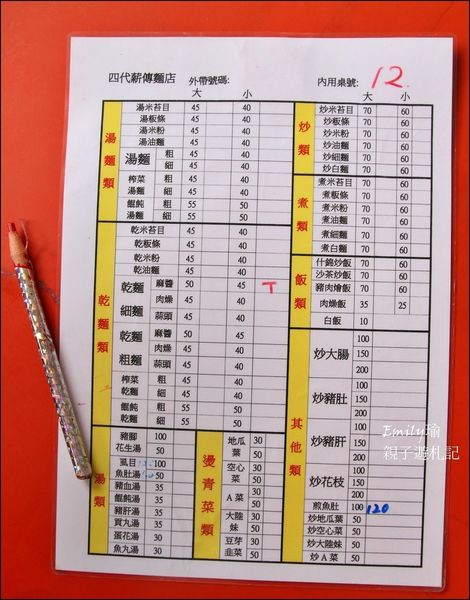 四代薪傳麵店 外帶號碼: 內用桌號: 12.
大 小 大 小
湯麵類
湯米苔目 45 40
湯板條 45 40
湯米粉 45 40
湯油麵 45 40
湯麵 粗 45 40
細 45 40
榨菜湯麵 粗 45 40
細 45 40
餛飩湯麵 粗 55 50
細 55 50
乾麵類
乾米苔目 45 40
乾板條 45 40
乾米粉 45 40
乾油麵 45 40
乾麵細麵 麻醬 50 45 T
肉燥 45 40
蒜頭 45 40
乾麵粗麵 麻醬 50 45
肉燥 45 40
蒜頭 45 40
榨菜乾麵 粗 45 40
細 45 40
餛飩乾麵 粗 55 50
細 55 50
湯類
豬腳花生湯 100
50
虱目魚肚湯 100
50
豬血湯 35
餛飩湯 35
豬肝湯 35
貢丸湯 35
蛋花湯 30
魚丸湯 30
燙青菜類
地瓜葉 30
50
空心菜 30
50
A菜 30
50
大陸妹 30
50
豆芽 30
韭菜 50
炒類
炒米苔目 70 60
炒板條 70 60
炒米粉 70 60
炒油麵 70 60
炒細麵 70 60
炒白麵 70 60
煮類
煮米苔目 70 60
煮板條 70 60
煮米粉 70 60
煮油麵 70 60
煮細麵 70 60
煮白麵 70 60
飯類
什錦炒飯 70 60
沙茶炒飯 70 60
豬肉燴飯 70 60
肉燥飯 35 25
白飯 10
其他類
炒大腸 100
150
200
炒豬肚 100
150
200
炒豬肝 100
150
200
炒花枝 100
150
200
煎魚肚 100 120
炒地瓜葉 50
炒空心菜 50
炒大陸妹 50
炒A菜 50
Emily瑜
親子遊札記